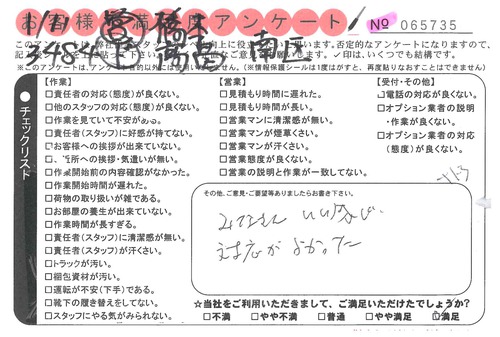 お客様満足度アンケート No 065735
※このアンケートは、アンケート目的以外には使用いたしません。(※情報保護シールは1度はがすと、再度貼りなおすことはできません)
チェックリスト
【作業】
□責任者の対応(態度)が良くない。
□他のスタッフの対応(態度)が良くない。
□作業を見ていて不安が
□責任者(スタッフ)に好感が持てない。
□お客様への挨拶が出来ていない。
所への挨拶・気遣いが無い。
開始前の内容確認がなかった。
□作業開始時間が遅れた。
□荷物の取り扱いが雑である。
□お部屋の養生が出来ていない。
□作業時間が長すぎる。
□責任者(スタッフ)に清潔感が無い。
□責任者(スタッフ)が汗くさい。
□トラックが汚い。
□梱包資材が汚い。
□運転が不安(下手)である。
□靴下の履き替えをしてない。
□スタッフにやる気がみられない。
【営業】
□見積もり時間に遅れた。
□見積もり時間が長い。
□営業マンに清潔感が無い。
□営業マンが煙草くさい。
□営業マンが汗くさい。
□営業態度が良くない。
□営業の説明と作業が一致してない。
【受付・その他】
□電話の対応が良くない。
□オプション業者の説明
・作業が良くない。
□オプション業者の対応
(態度)が良くない。
その他、ご意見・ご要望等ありましたらお書き下さい。
みなさん いい感じ
対応が よかった
☆当社をご利用いただきまして、ご満足いただけたでしょうか?
□不満 □やや不満 □普通 □やや満足 満足